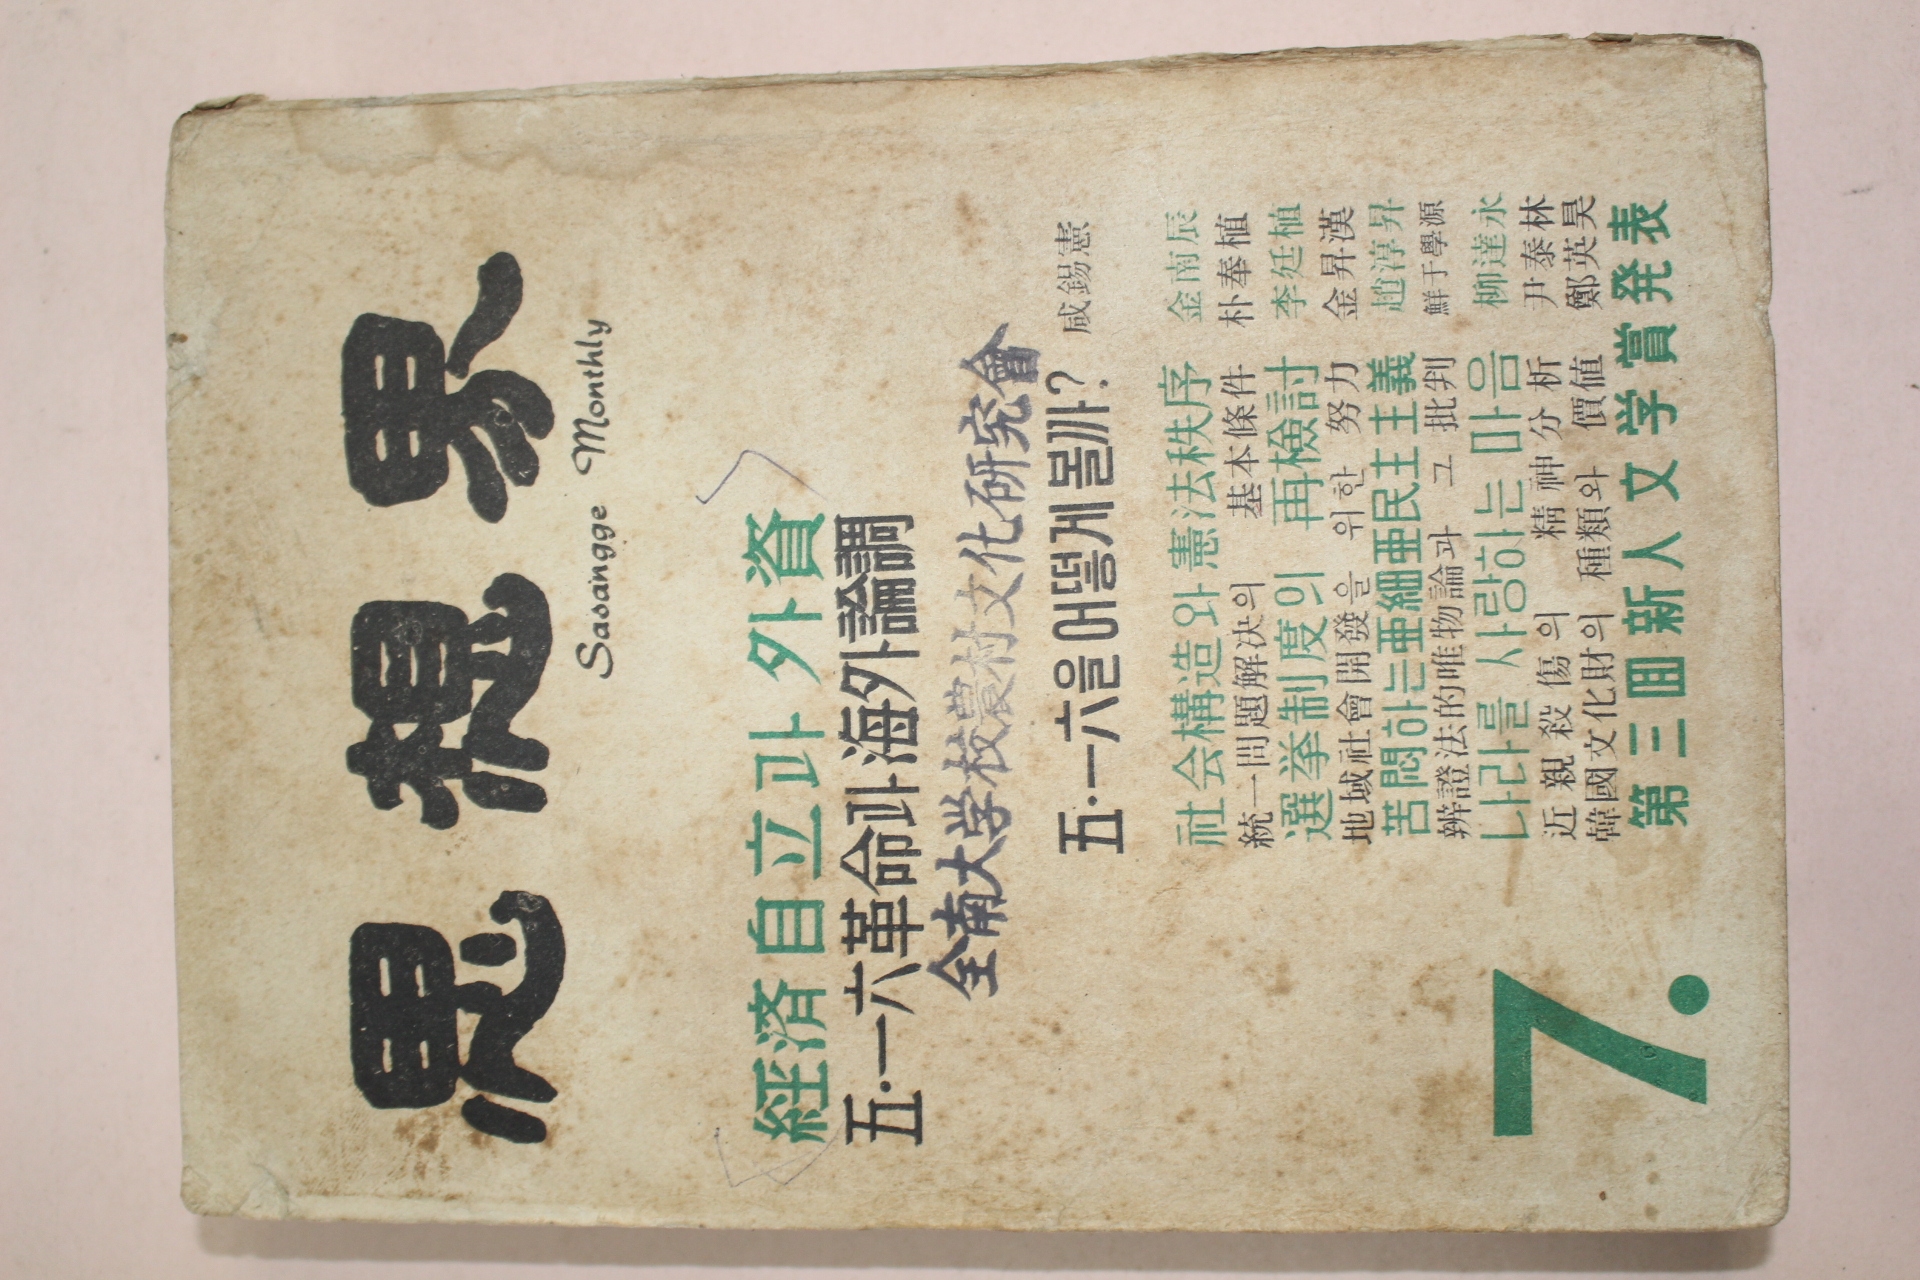 思想界
Sasangge Monthly
經済自立과 外資
五·一六革命과 海外論調
全南大学校農村文化研究會
五·一六을 어떻게 볼까? 咸錫憲
社会構造와 憲法秩序 金南辰
統一問題解決의 基本條件 朴奉植
選挙制度의 再檢討 李廷植
地域社會開發을 위한 努力 金昇漢
苦悶하는 亜細亜民主主義 趙淳昇
辨證法的唯物論과 그 批判 鮮于學源
나라를 사랑하는 마음 柳達永
近親殺傷의 精神分析 尹泰林
韓國文化財의 種類와 價値 鄭英昊
第三回新人文学賞発表
7.